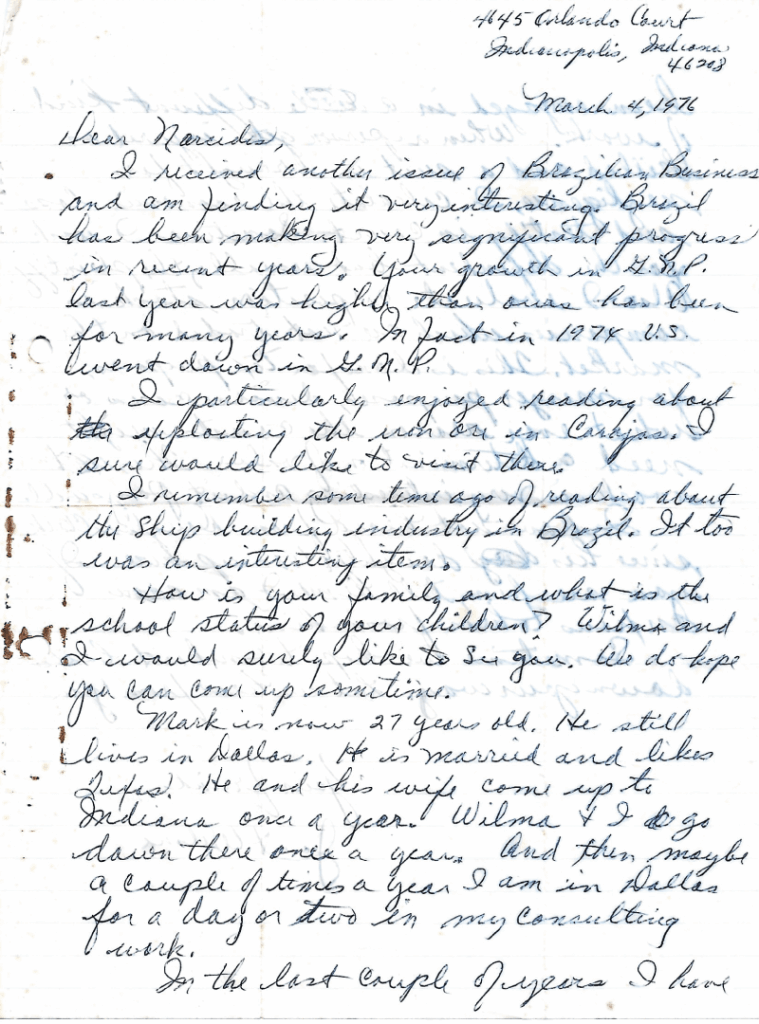 4645 Orlando Court
Indianapolis, Indiana
46208
March 4, 1976
Dear Narcidis,
I received another issue of Brazilian Business
and am finding it very interesting. Brazil
has been making very significant progress
in recent years. Your growth in G.N.P.
last year was higher than ours has been
for many years. In fact in 1974 U.S.
went down in G.N.P.
I particularly enjoyed reading about
the exploiting the iron ore in Carajas. I
sure would like to visit there.
I remember some time ago of reading about
the ship building industry in Brazil. It too
was an interesting item.
How is your family and what is the
school status of your children? Wilma and
I would surely like to see you. We do hope
you can come up sometime.
Mark is now 27 years old. He still
lives in Dallas. He is married and likes
Texas. He and his wife come up to
Indiana once a year. Wilma & I go
down there once a year. And then maybe
a couple of times a year I am in Dallas
for a day or two in my consulting
work.
In the last couple of years I have